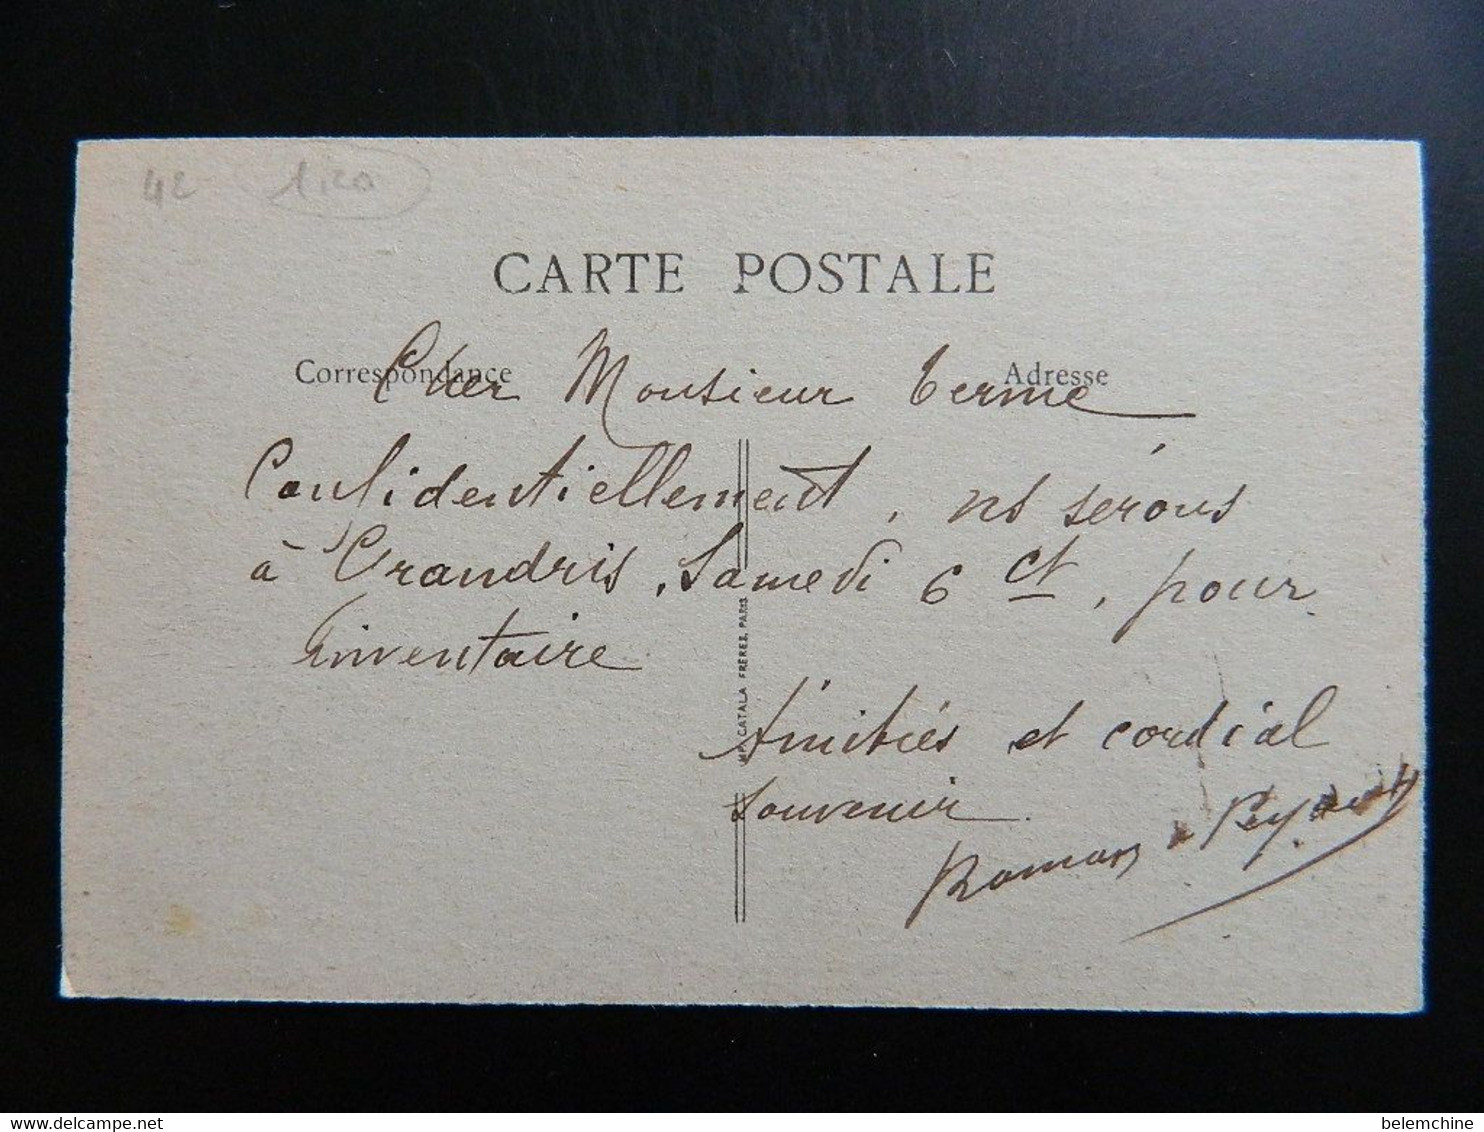 42 1,20
CARTE POSTALE
Correspondance Adresse
Cher Monsieur Terme
Confidentiellement, ns serons
à Grandris, Samedi 6 ct, pour
inventaire
Amitiés et cordial
souvenir
Roman
CATALA FRERES, PARIS
www.delcampe.net
belemchine